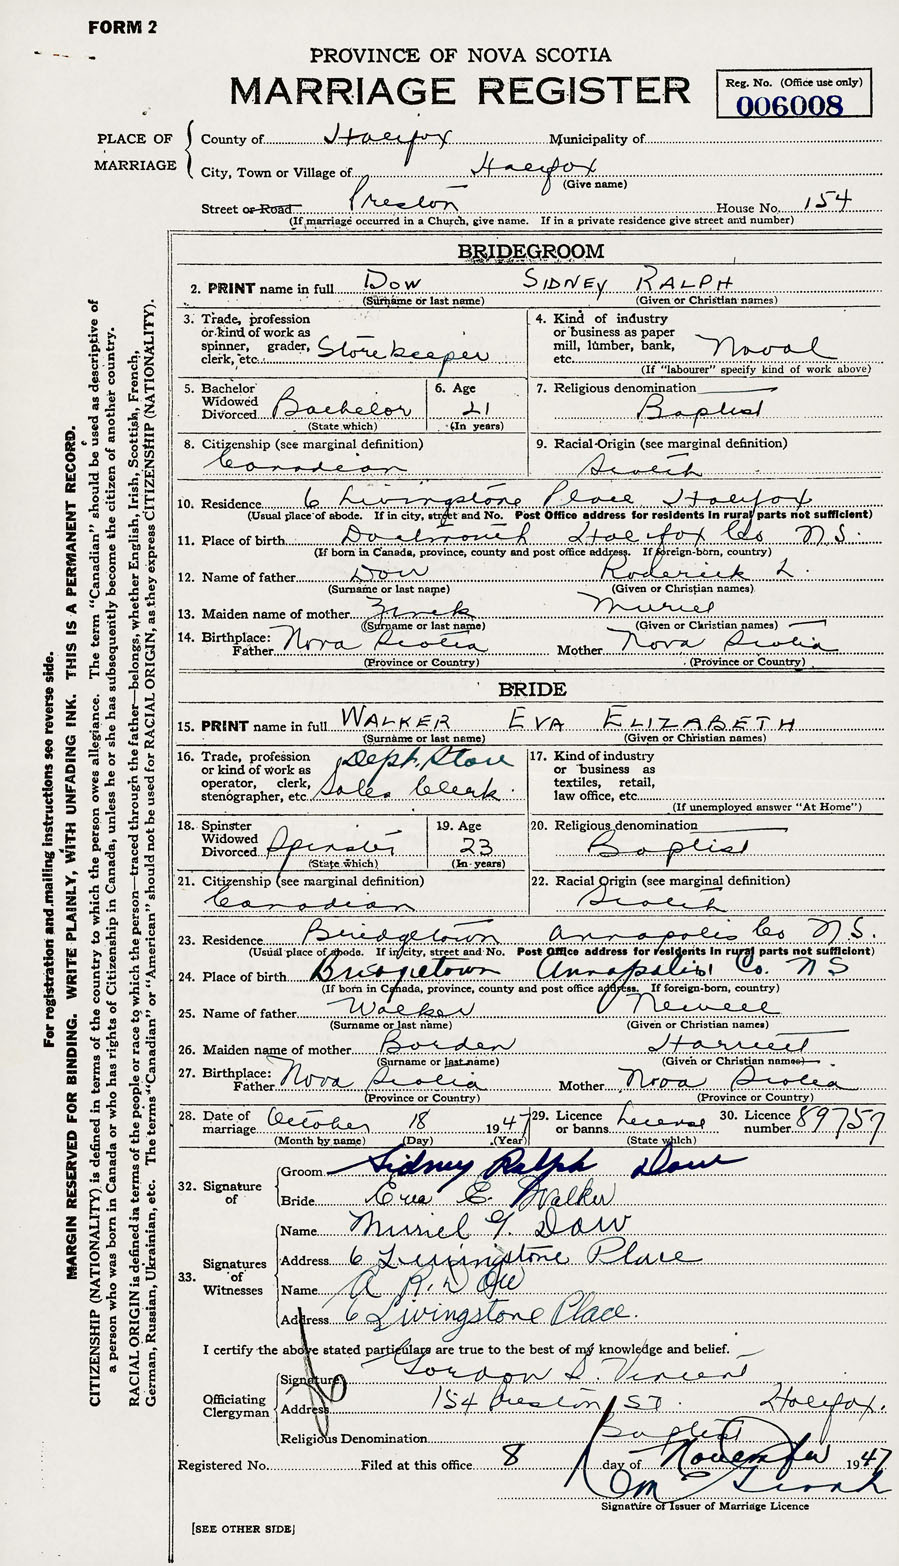 FORM 2
PROVINCE OF NOVA SCOTIA
MARRIAGE REGISTER
Reg. No. (Office use only)
006008
PLACE OF MARRIAGE
County of Halifax Municipality of
City, Town or Village of Halifax
(Give name)
Street or Road Preston House No. 154
(If marriage occurred in a Church, give name. If in a private residence give street and number)
BRIDEGROOM
2. PRINT name in full DOW SIDNEY RALPH
(Surname or last name) (Given or Christian names)
3. Trade, profession or kind of work as spinner, grader, clerk, etc. Storekeeper
4. Kind of industry or business as paper mill, lumber, bank, etc. Naval
(If "labourer" specify kind of work above)
5. Bachelor Widowed Divorced Bachelor
(State which)
6. Age 21
(In years)
7. Religious denomination
Baptist
8. Citizenship (see marginal definition)
Canadian
9. Racial Origin (see marginal definition)
Scotch
10. Residence 6 Livingstone Place Halifax
(Usual place of abode. If in city, street and No. Post Office address for residents in rural parts not sufficient)
11. Place of birth Dartmouth Halifax Co N.S.
(If born in Canada, province, county and post office address. If foreign-born, country)
12. Name of father Dow Roderick L.
(Surname or last name) (Given or Christian names)
13. Maiden name of mother Zinck Muriel
(Surname or last name) (Given or Christian names)
14. Birthplace: Father Nova Scotia Mother Nova Scotia
(Province or Country) (Province or Country)
BRIDE
15. PRINT name in full WALKER EVA ELIZABETH
(Surname or last name) (Given or Christian names)
16. Trade, profession or kind of work as operator, clerk, stenographer, etc. Dept. Store Sales Clerk
17. Kind of industry or business as textiles, retail, law office, etc.
(If unemployed answer "At Home")
18. Spinster Widowed Divorced Spinster
(State which)
19. Age 23
(In years)
20. Religious denomination
Baptist
21. Citizenship (see marginal definition)
Canadian
22. Racial Origin (see marginal definition)
Scotch
23. Residence Bridgetown Annapolis Co N.S.
(Usual place of abode. If in city, street and No. Post Office address for residents in rural parts not sufficient)
24. Place of birth Bridgetown Annapolis Co. NS
(If born in Canada, province, county and post office address. If foreign-born, country)
25. Name of father Walker Newell
(Surname or last name) (Given or Christian names)
26. Maiden name of mother Borden Harriett
(Surname or last name) (Given or Christian names)
27. Birthplace: Father Nova Scotia Mother Nova Scotia
(Province or Country) (Province or Country)
28. Date of marriage October 18 1947
(Month by name) (Day) (Year)
29. Licence or banns License
(State which)
30. Licence number 89757
32. Signature of
Groom Sidney Ralph Dow
Bride Eva E. Walker
33. Signatures of Witnesses
Name Muriel G. Dow
Address 6 Livingstone Place
Name A. R. Dow
Address 6 Livingstone Place.
I certify the above stated particulars are true to the best of my knowledge and belief.
Officiating Clergyman
Signature Gordon S. Vincent
Address 154 Preston ST. Halifax.
Religious Denomination Baptist
Registered No. Filed at this office 8 day of November 1947
Signature of Issuer of Marriage Licence
[SEE OTHER SIDE]
For registration and mailing instructions see reverse side.
MARGIN RESERVED FOR BINDING. WRITE PLAINLY, WITH UNFADING INK. THIS IS A PERMANENT RECORD.
CITIZENSHIP (NATIONALITY) is defined in terms of the country to which the person owes allegiance. The term "Canadian" should be used as descriptive of
a person who was born in Canada or who has rights of Citizenship in Canada, unless he or she has subsequently become the citizen of another country.
RACIAL ORIGIN is defined in terms of the people or race to which the person—traced through the father—belongs, whether English, Irish, Scottish, French,
German, Russian, Ukrainian, etc. The terms "Canadian" or "American" should not be used for RACIAL ORIGIN, as they express CITIZENSHIP (NATIONALITY).